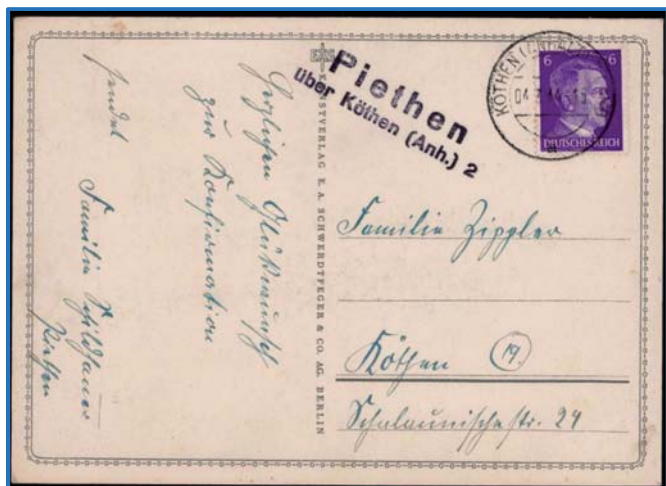 Piethen
über Köthen (Anh.) 2
KÖTHEN (ANHALT)
04
6 6
DEUTSCHES REICH
KUNSTVERLAG E. A. SCHWERDTFEGER & CO. AG. BERLIN
Herzlichen Glückwunsch
zur Konfirmation
sendet
Familie Schildhauer
Piethen
Familie Zippler
Köthen (19)
Schalaunischestr. 24